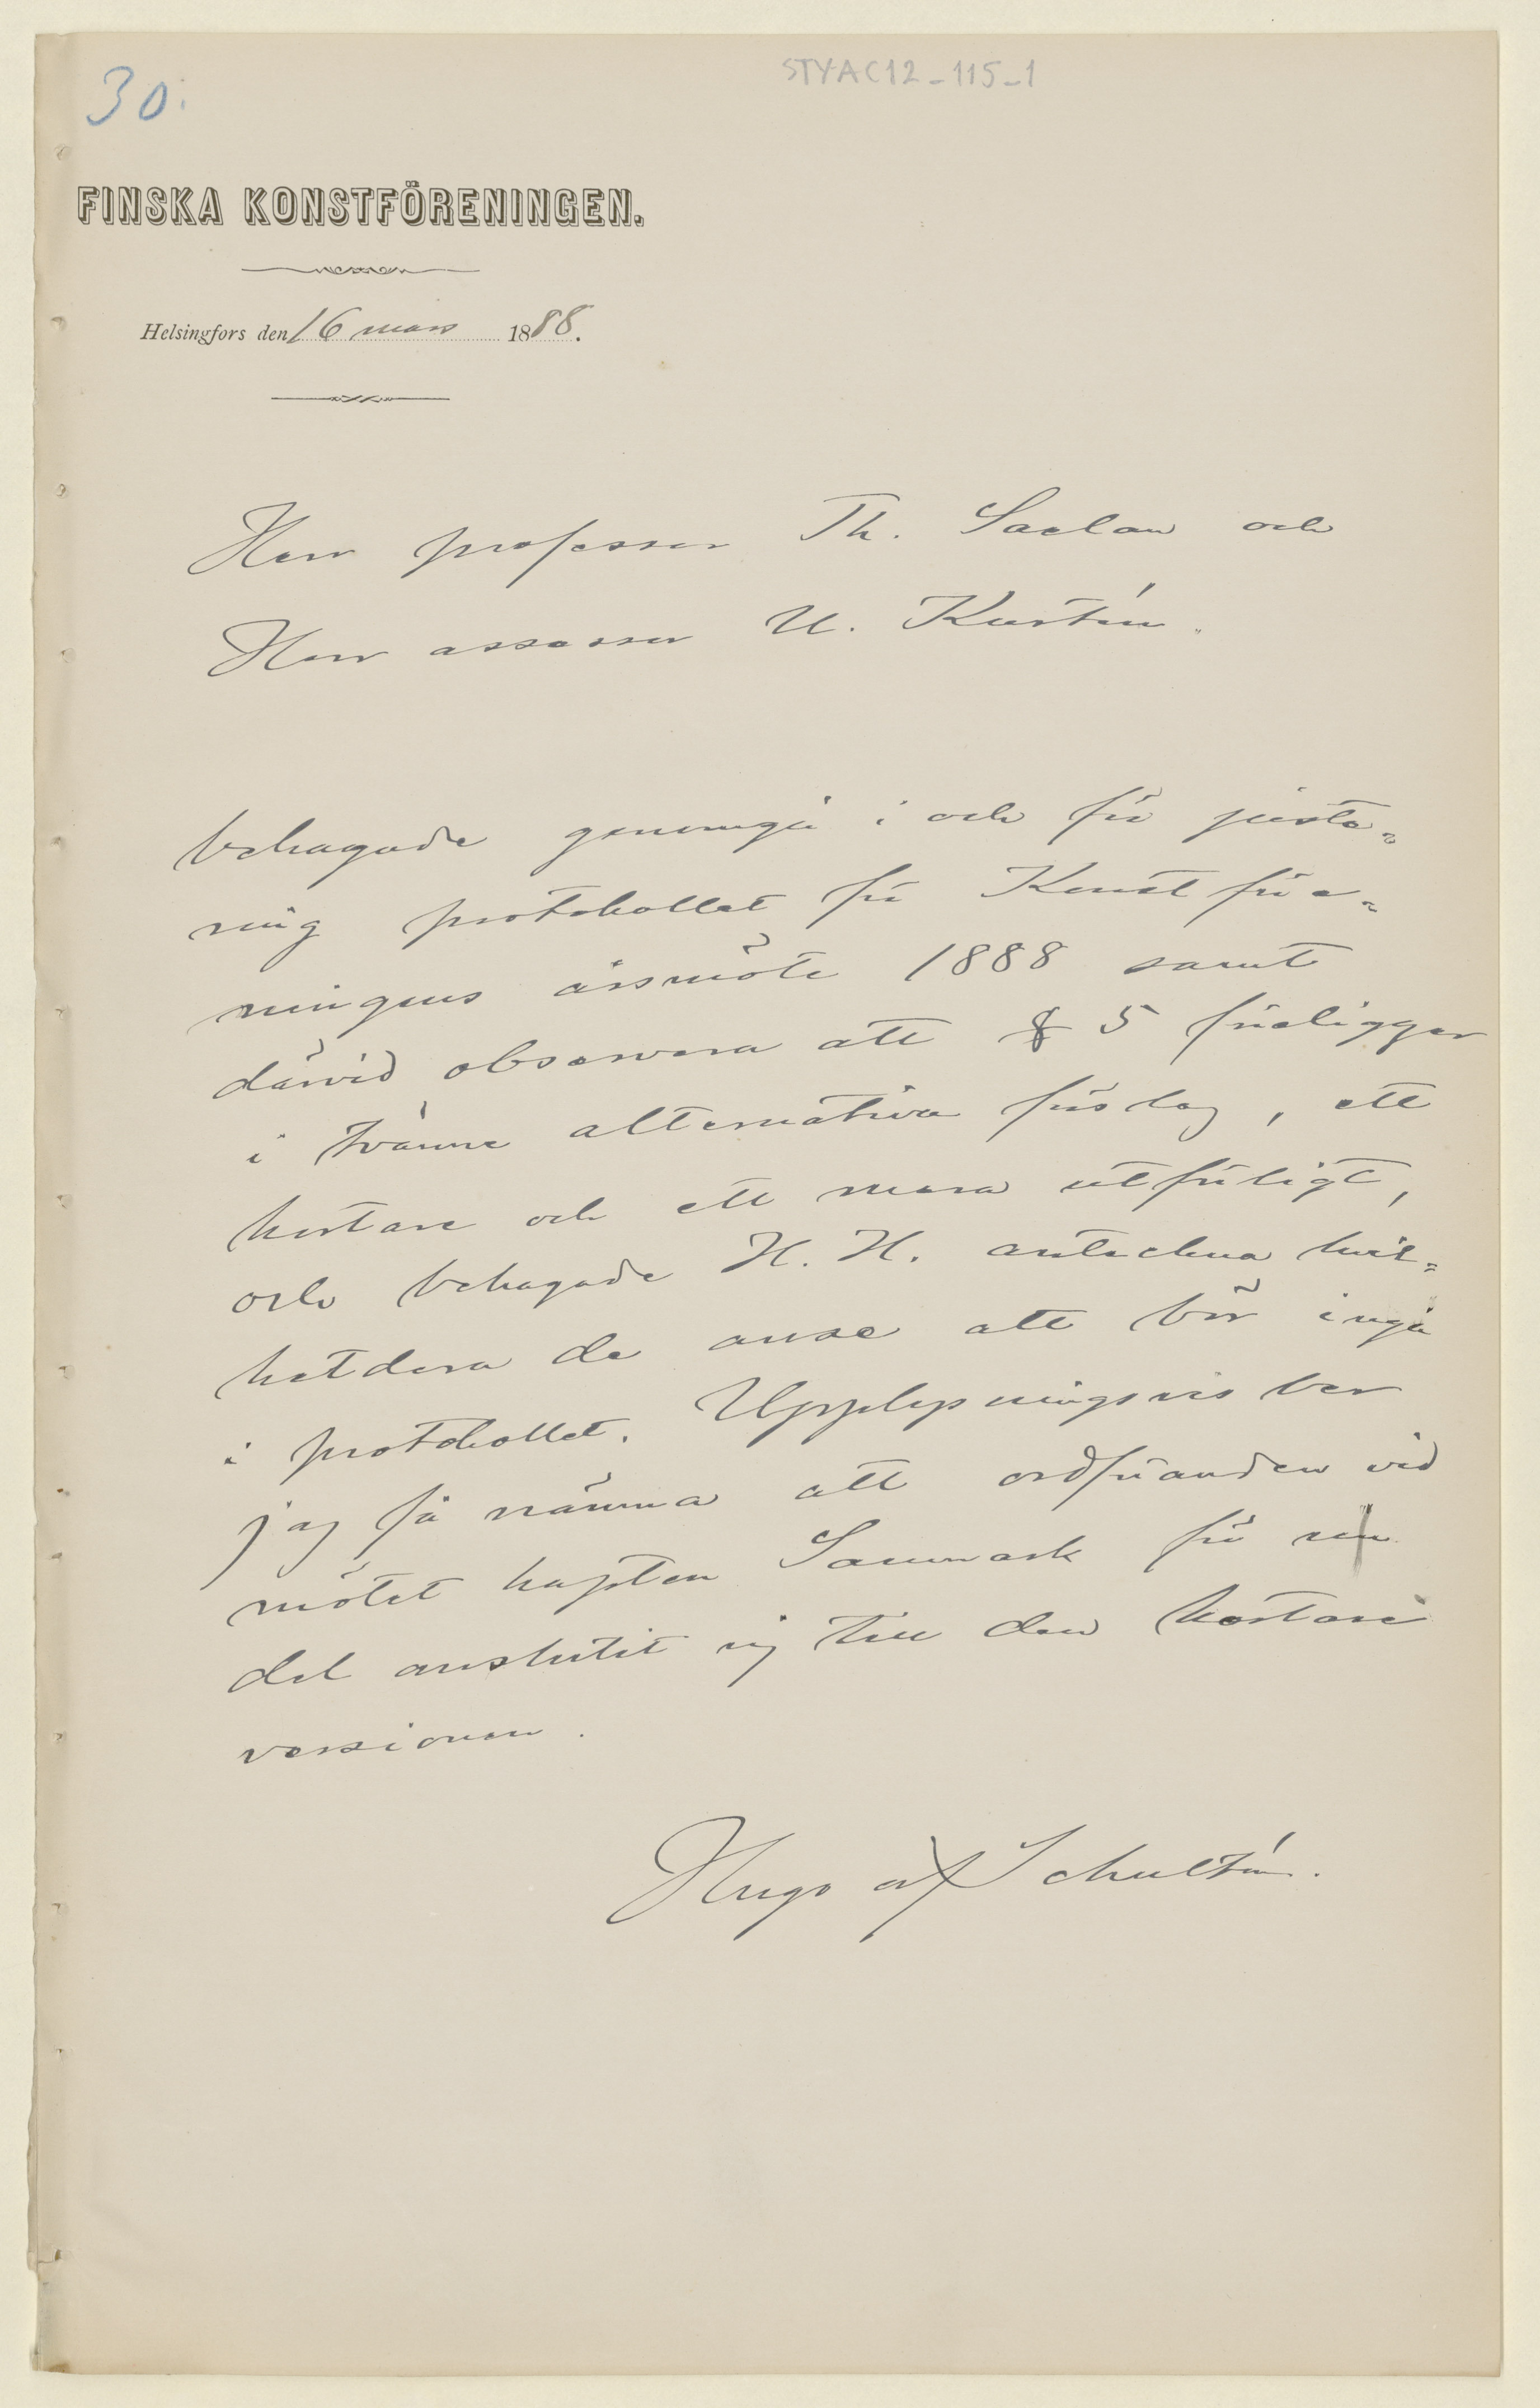 30.
STYAC12-115-1
FINSKA KONSTFÖRENINGEN.
Helsingfors den 16 mars 1888.
Herr professor Th. Saelan och
Herr assessor U. Kurtén.
behagade genomgå i och för juste=
ring protokollet för Konstföre=
ningens årsmöte 1888 samt
därvid observera att § 5 föreligger
i tvänne alternativa förslag, ett
kortare och ett mera utförligt,
och behagade H. H. anteckna hvil=
ketdera de anse att bör ingå
i protokollet. Upplysningsvis ber
jag få nämna att ordföranden vid
mötet kapten Sanmark för sin
del anslutit sig till den kortare
versionen.
Hugo af Schultén.